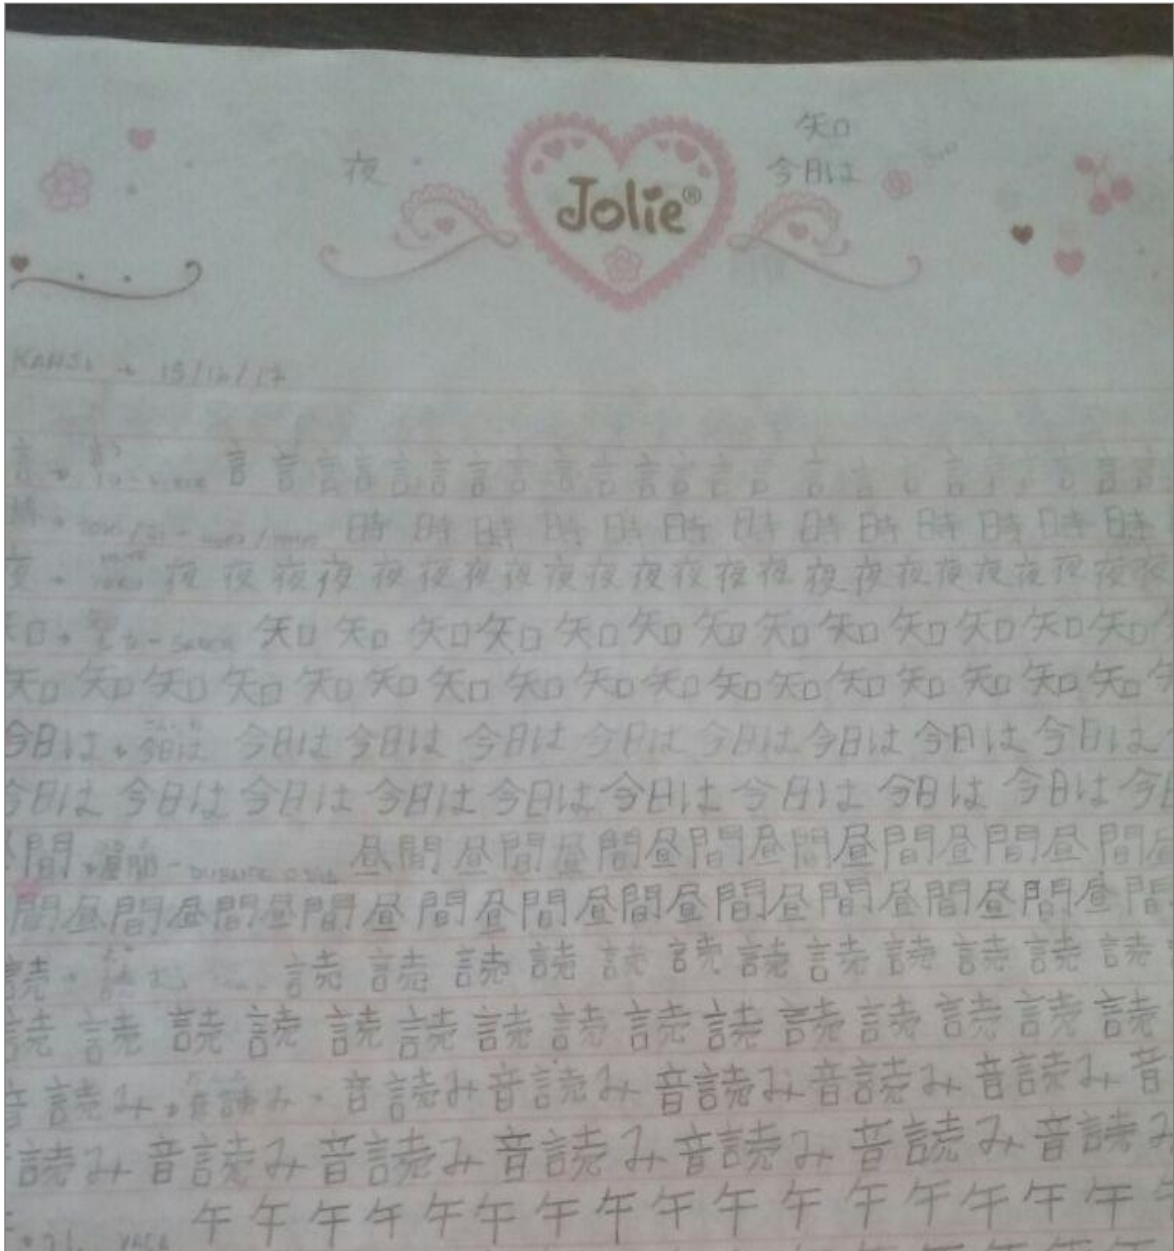 知
夜 今日は
Jolie®
KANJI → 15/12/17
言 → 言 言 言 言 言 言 言 言 言 言 言 言 言 言 言 言 言 言 言 言 言 言
時 時 時 時 時 時 時 時 時 時 時 時 時
夜 夜 夜 夜 夜 夜 夜 夜 夜 夜 夜 夜 夜 夜 夜 夜 夜 夜 夜 夜 夜 夜 夜
知 → SABER 知 知 知 知 知 知 知 知 知 知 知 知
知 知 知 知 知 知 知 知 知 知 知 知 知 知 知 知
今日は → 今日は 今日は 今日は 今日は 今日は 今日は 今日は 今日は 今日は
今日は 今日は 今日は 今日は 今日は 今日は 今日は 今日は 今日は 今日
間 → 昼間 - DURANTE O DIA 昼間 昼間 昼間 昼間 昼間 昼間 昼間 昼間
間 昼間 昼間 昼間 昼間 昼間 昼間 昼間 昼間 昼間 昼間 昼間
読 → 読む 読 読 読 読 読 読 読 読 読 読 読 読
読 読 読 読 読 読 読 読 読 読 読 読 読 読 読
音読み → 音読み 音読み 音読み 音読み 音読み 音読み 音
読み 音読み 音読み 音読み 音読み 音読み 音読み
午 午 午 午 午 午 午 午 午 午 午 午 午 午 午 午